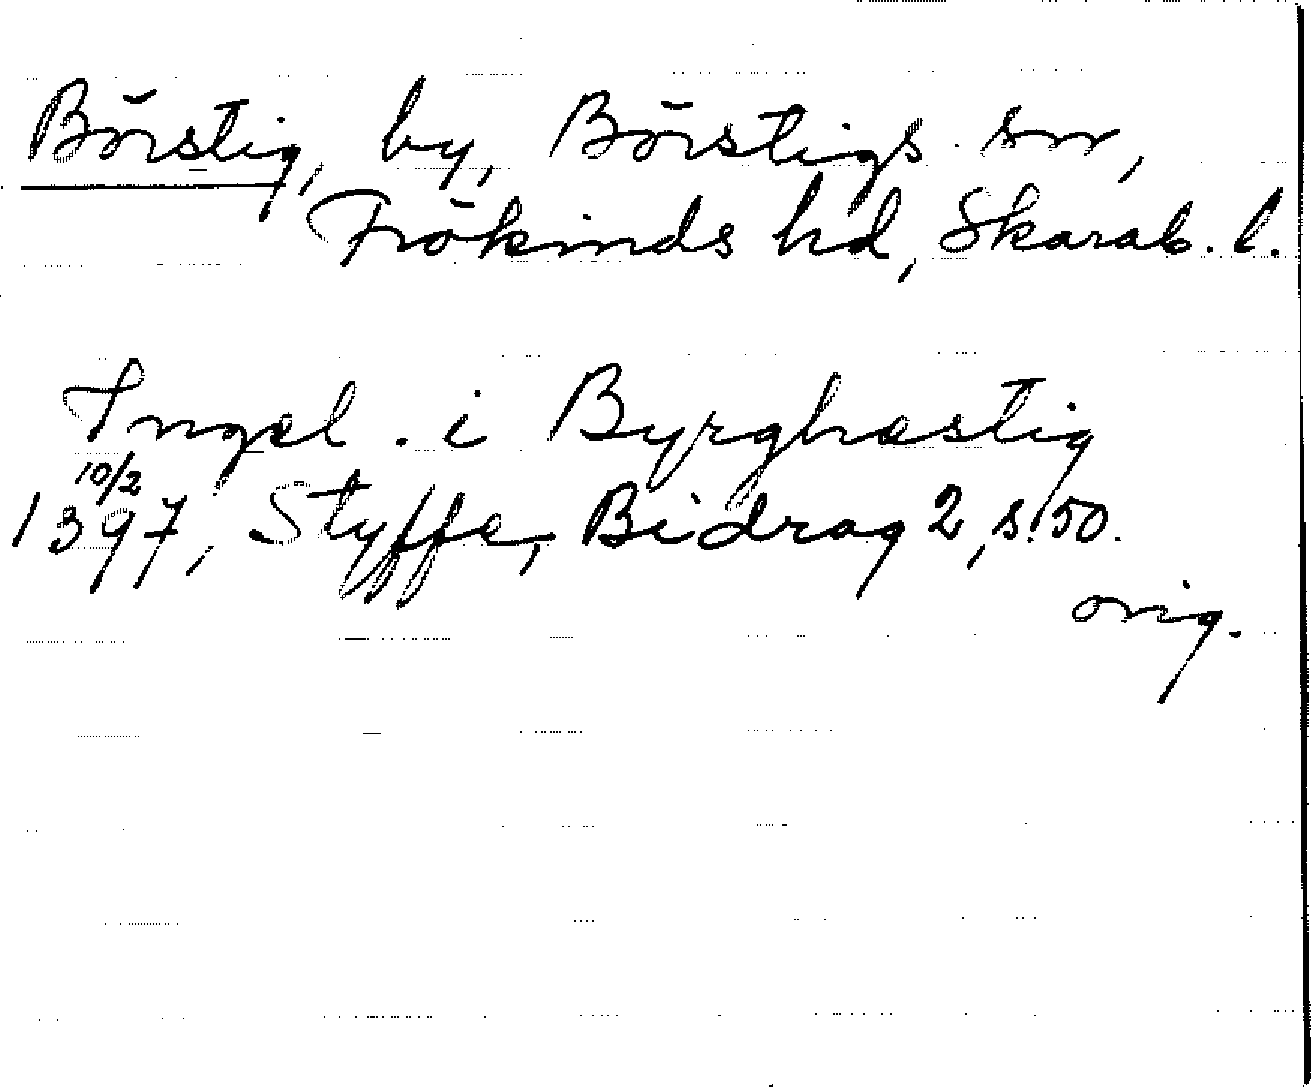 Börstig, by, Börstigs sn,
Frökinds hd, Skarab. l.
Ingel . i Byrghæstig
10/2
1397, Styffe, Bidrag 2, s. 50.
orig.